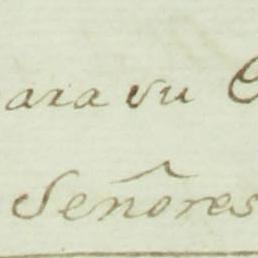 para su
Señores